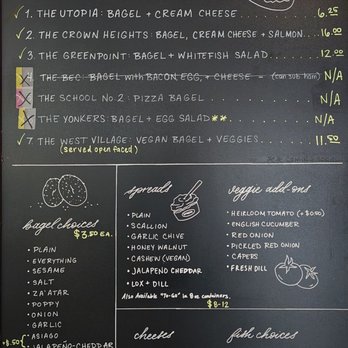 ✓1. THE UTOPIA: BAGEL + CREAM CHEESE. 6.25
✓2. THE CROWN HEIGHTS: BAGEL, CREAM CHEESE + SALMON. 16.00
✓3. THE GREENPOINT: BAGEL + WHITEFISH SALAD 12.00
X 4. THE BEC: BAGEL WITH BACON, EGG, + CHEESE - (can sub ham) N/A
X THE SCHOOL NO. 2: PIZZA BAGEL N/A
X THE YONKERS: BAGEL + EGG SALAD** N/A
✓7. THE WEST VILLAGE: VEGAN BAGEL + VEGGIES 11.50
(served open faced)
bagel choices
$3.50 EA.
• PLAIN
• EVERYTHING
• SESAME
• SALT
• ZA'ATAR
• POPPY
• ONION
• GARLIC
• ASIAGO
+$.50
• JALAPEÑO-CHEDDAR
spreads
• PLAIN
• SCALLION
• GARLIC CHIVE
• HONEY WALNUT
• CASHEW (VEGAN)
• JALAPENO CHEDDAR
• LOX + DILL
Also Available "To-Go" in 8oz containers.
$8-12
veggie add-ons
• HEIRLOOM TOMATO (+$0.50)
• ENGLISH CUCUMBER
• RED ONION
• PICKLED RED ONION
• CAPERS
• FRESH DILL
cheeses
fish choices